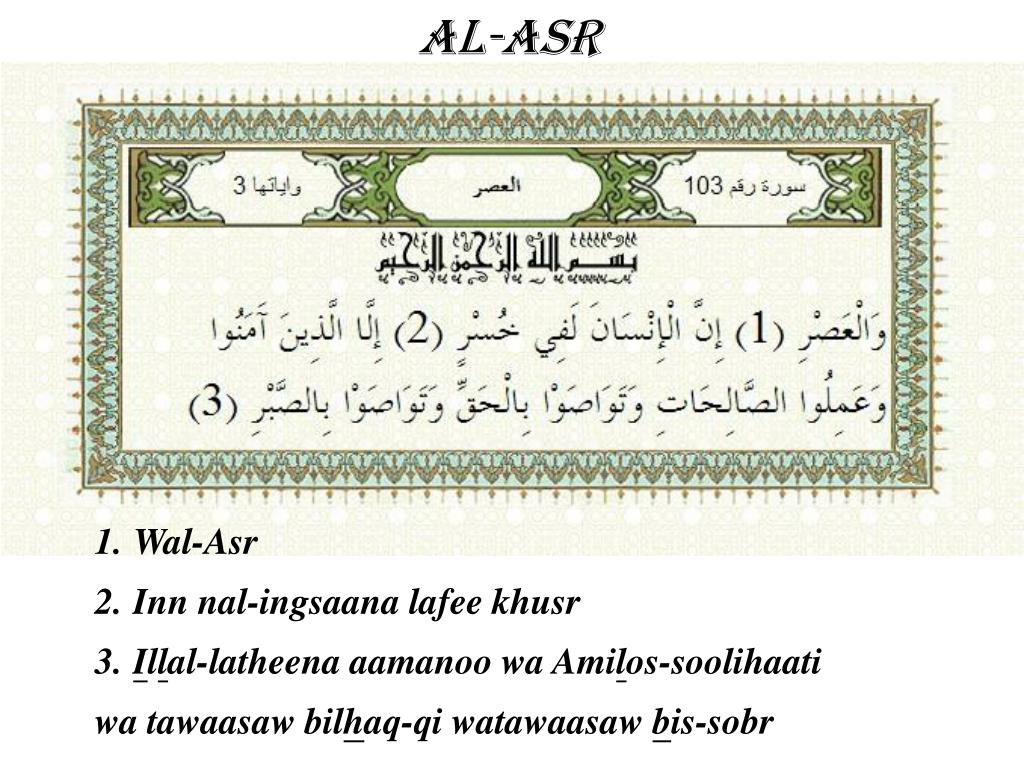 AL-ASR
سورة رقم 103 العصر واياتها 3
بسم الله الرحمن الرحيم
وَالْعَصْرِ (1) إِنَّ الْإِنْسَانَ لَفِي خُسْرٍ (2) إِلَّا الَّذِينَ آمَنُوا
وَعَمِلُوا الصَّالِحَاتِ وَتَوَاصَوْا بِالْحَقِّ وَتَوَاصَوْا بِالصَّبْرِ (3)
1. Wal-Asr
2. Inn nal-ingsaana lafee khusr
3. Illal-latheena aamanoo wa Amilos-soolihaati
wa tawaasaw bilhaq-qi watawaasaw bis-sobr